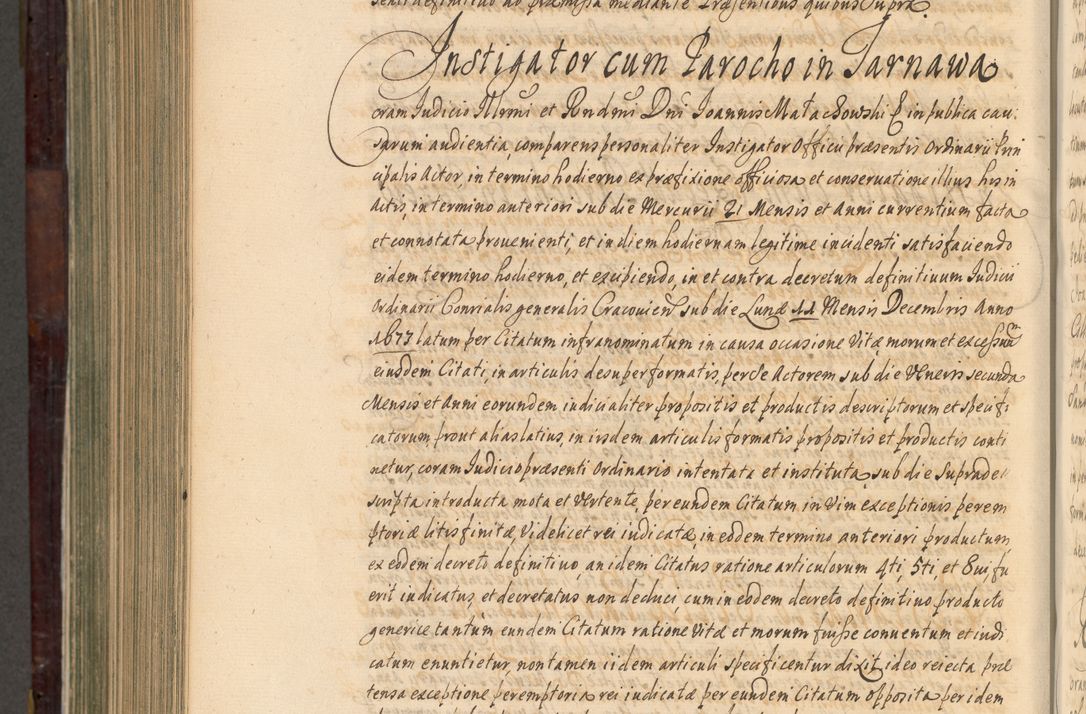 senti definitiuo ac præmissa mediante Præsentibus quibus supra.
Instigator cum Parocho in Tarnawa
Coram Iudicio Illrmi et Rndmi Dni Ioannis Małachowski E in publica cau
sarum audientia, comparens personaliter Instigator Officii præsentis Ordinarii Prin
cipalis Actor, in termino hodierno ex præfixione officiosa et conseruatione illius his in
Actis, in termino anteriori sub die Mercurii 21 Mensis et Anni currentium facta
et connotata prouenienti, et in diem hodiernam legitime incidenti satisfaciendo
eidem termino hodierno, et excipiendo, in et contra decretum definitiuum Iudicii
Ordinarii Consralis generalis Cracouien sub die Lunæ 11 Mensis Decembris Anno
1677 latum per Citatum infranominatum in causa occasione Vitæ morum et excessuum
eiusdem Citati, in articulis desuper formatis, per se Actorem sub die Veneris secunda
Mensis et Anni eorundem iudicialiter propositis et productis descriptorum et specifi
catorum prout alias latius in iisdem articulis formatis propositis et productis conti
netur, coram Iudicio præsenti Ordinario intentata et instituta, sub die supradei
scripta introducta mota et Vertente, per eundem Citatum in Vim exceptionis perem
ptoriæ litis finitæ Videlicet rei iudicatæ, in eodem termino anteriori productum
ex eodem decreto definitiuo, an idem Citatus ratione articulorum 4ti, 5ti, et 8ui fu
erit iudicatus, et decretatus non deduci, cum in eodem decreto definitiuo producto
generice tantum eundem Citatum ratione Vitæ et morum fuisse conuentum et iudi
catum enuntietur, non tamen iidem articuli specificentur dixit, ideo reiecta præ
tensa exceptione peremptoria rei iudicatæ per eundem Citatum opposita per idem